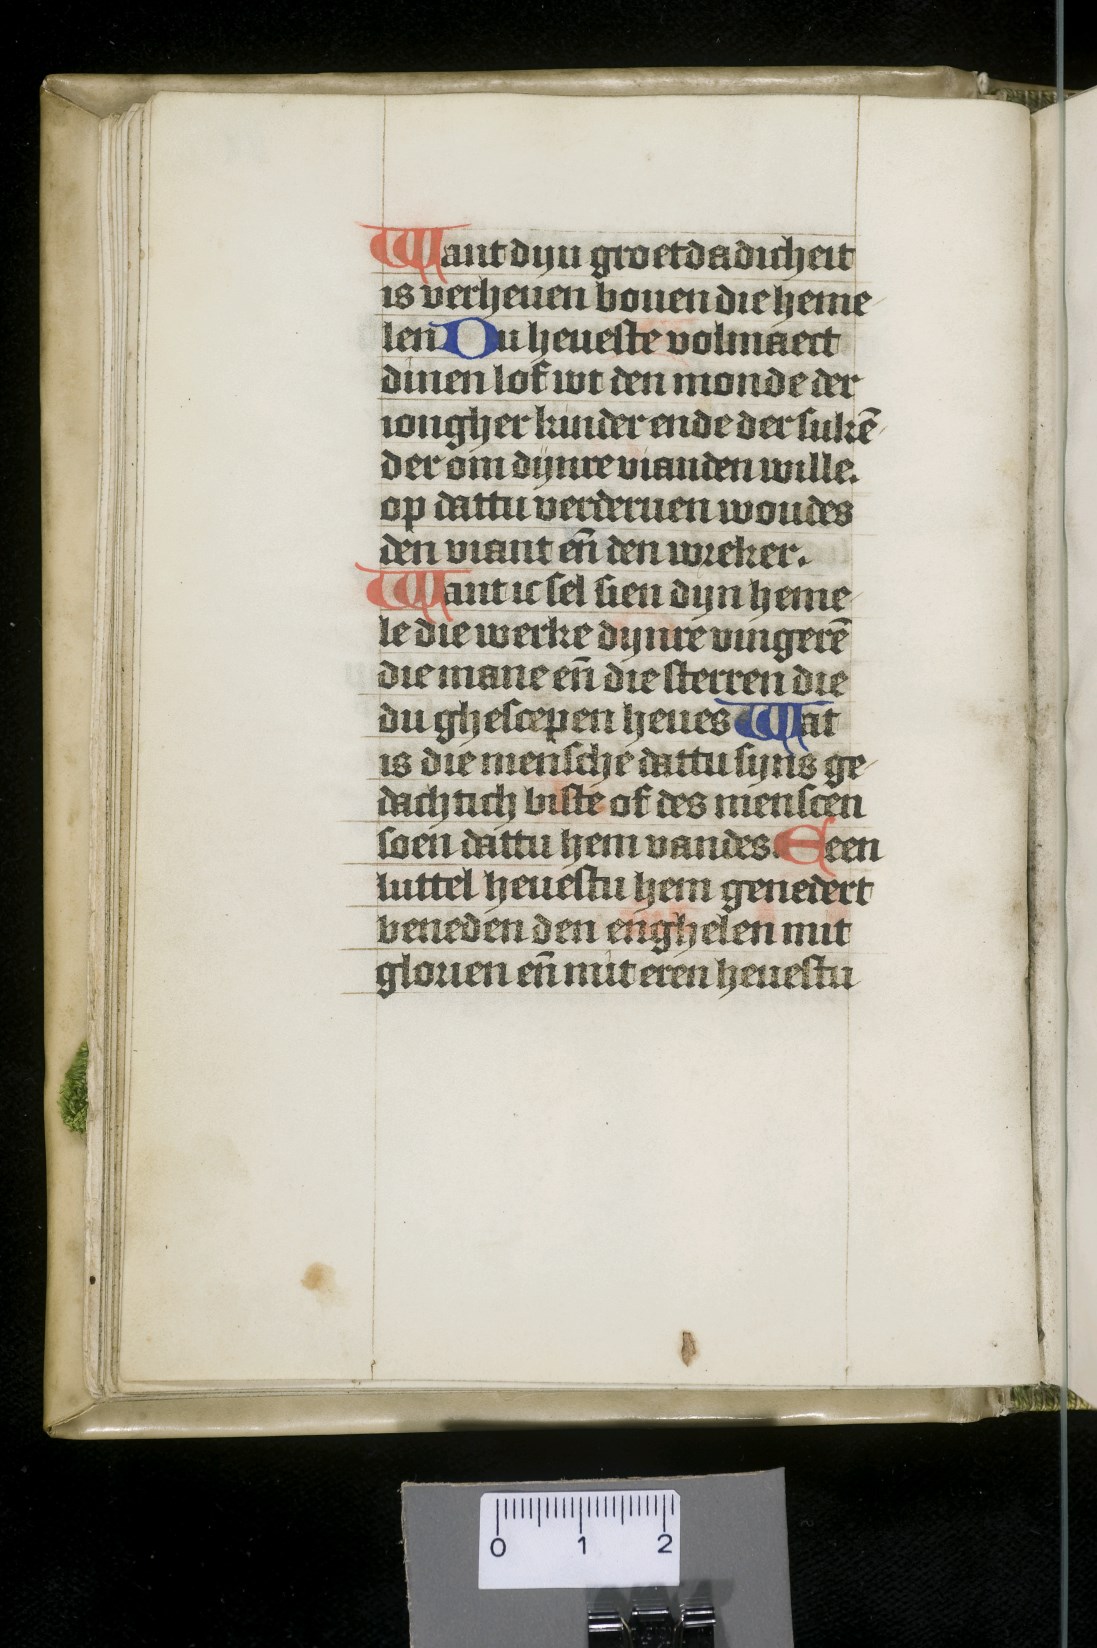 Want dijn groetdadicheit
is verheuen bouen die heme
len Du heueste volmaect
dinen lof wt den monde der
iongher kinder ende der sukē
der om dijnre vianden wille.
op dattu verderuen woudes
den viant en̄ den wreker.
Want ic sel sien dijn heme
le die werke dijnre vingerē
die mane en̄ die sterren die
du ghescepen heues Wat
is die mensche dattu sijns ge
dachtich biste of des menscen
soen dattu hem vandes. Een
luttel heuestu hem genedert
beneden den enghelen mit
glorien en̄ mit eren heuestu
0 1 2